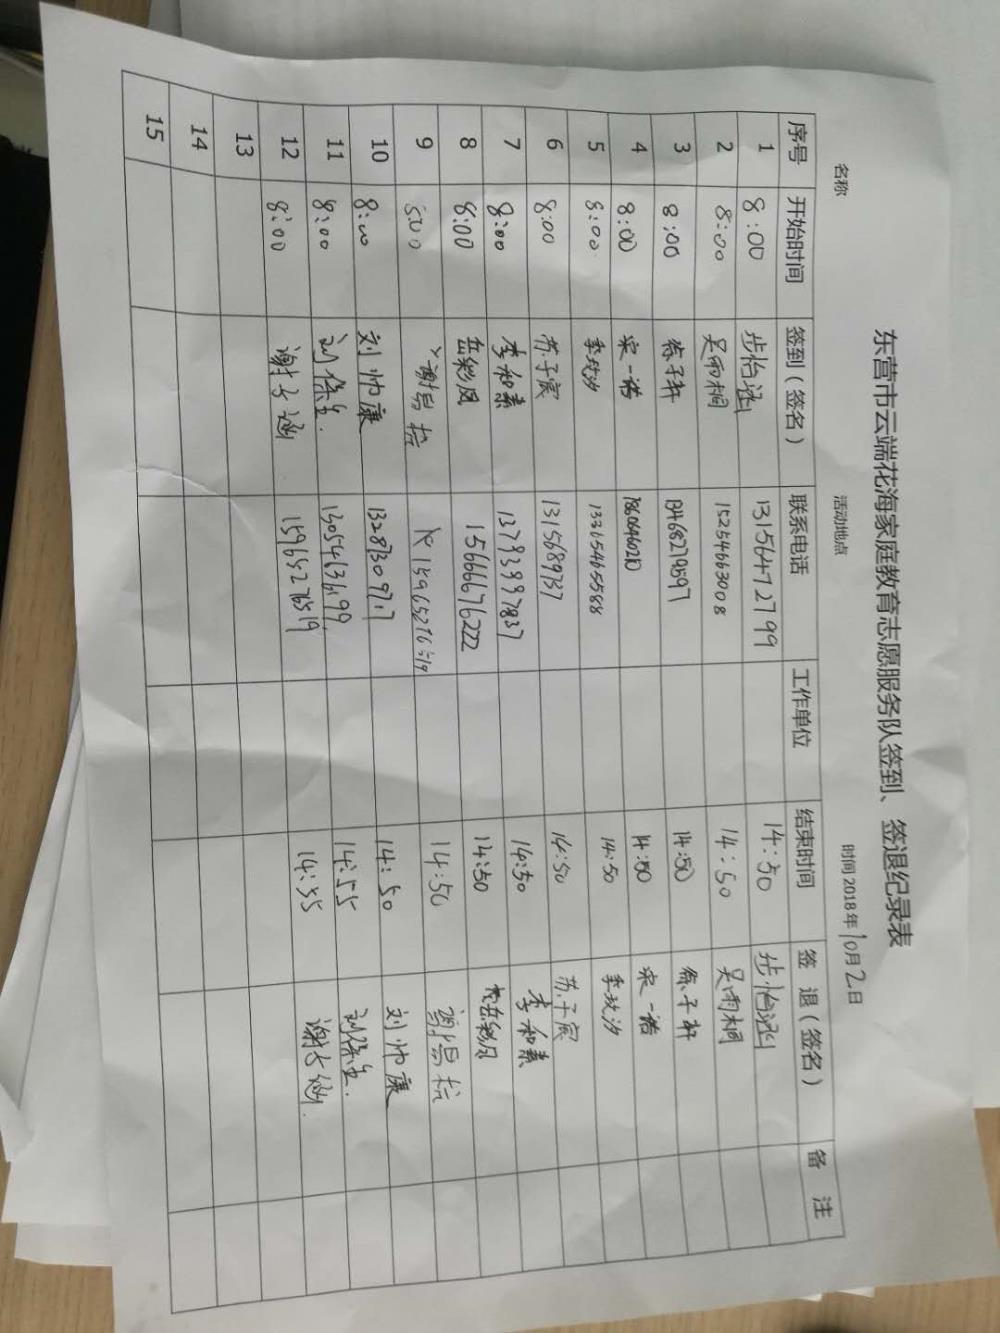 东营市云端花海家庭教育志愿服务队签到、签退纪录表
名称 活动地点 时间 2018年10月2日
序号 开始时间 签到（签名） 联系电话 工作单位 结束时间 签 退（签名） 备 注
1 8:00 步怡逊 13156472799 14:50 步怡逊
2 8:00 吴雨桐 15254663008 14:50 吴雨桐
3 8:00 徐子轩 13468279597 14:50 徐子轩
4 8:00 宋一诺 14:50 宋一诺
5 8:00 李玟汐 13365465588 14:50 李玟汐
6 8:00 苏子宸 14:50 苏子宸
7 8:00 李和素 13793997837 14:50 李和素
8 8:00 岳彩凤 15666676222 14:50 岳彩凤
9 14:50
10 8:00 刘帅康 14:50 刘帅康
11 8:00 13054636499 14:55
12 8:00 谢子涵 15965276519 14:55 谢子涵
13
14
15